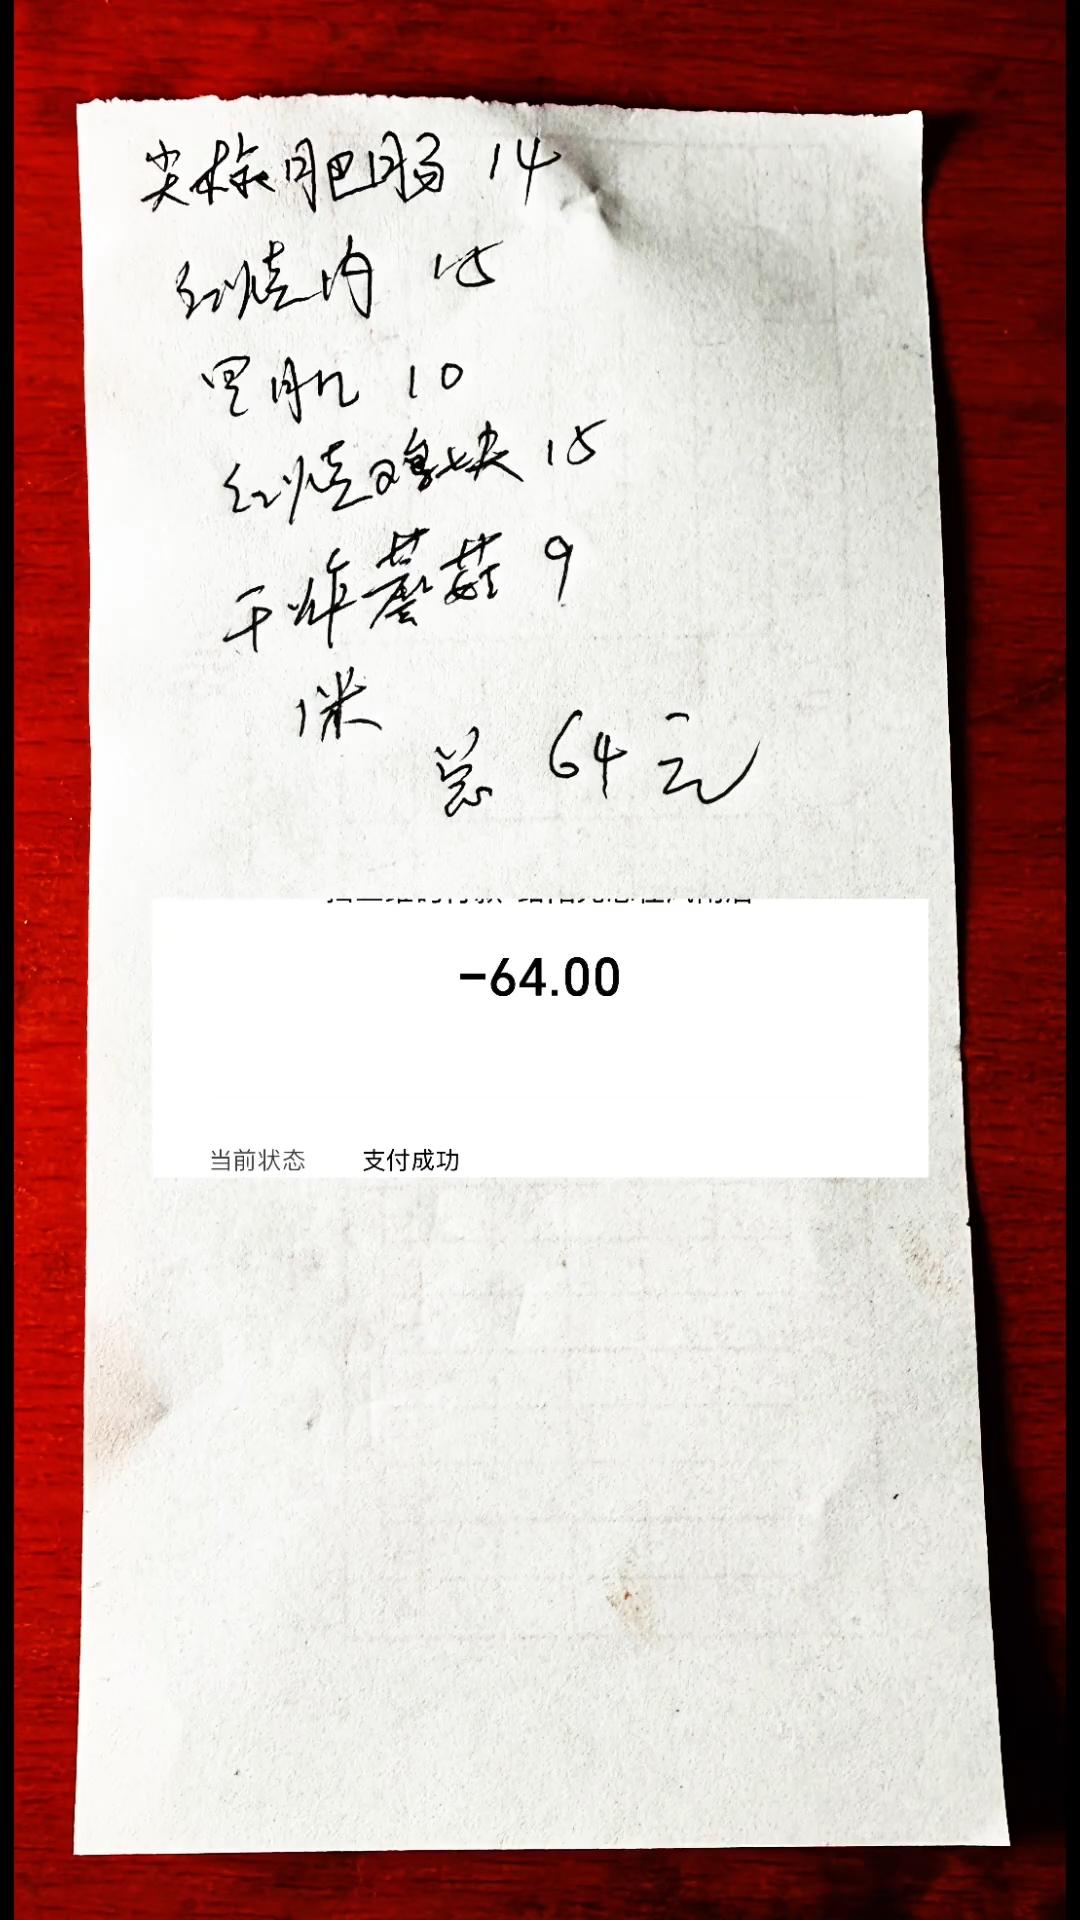 尖椒肥肠 14
红烧肉 15
里肌 10
红烧鸡块 15
干炸蘑菇 9
1米
总 64元
-64.00
当前状态 支付成功